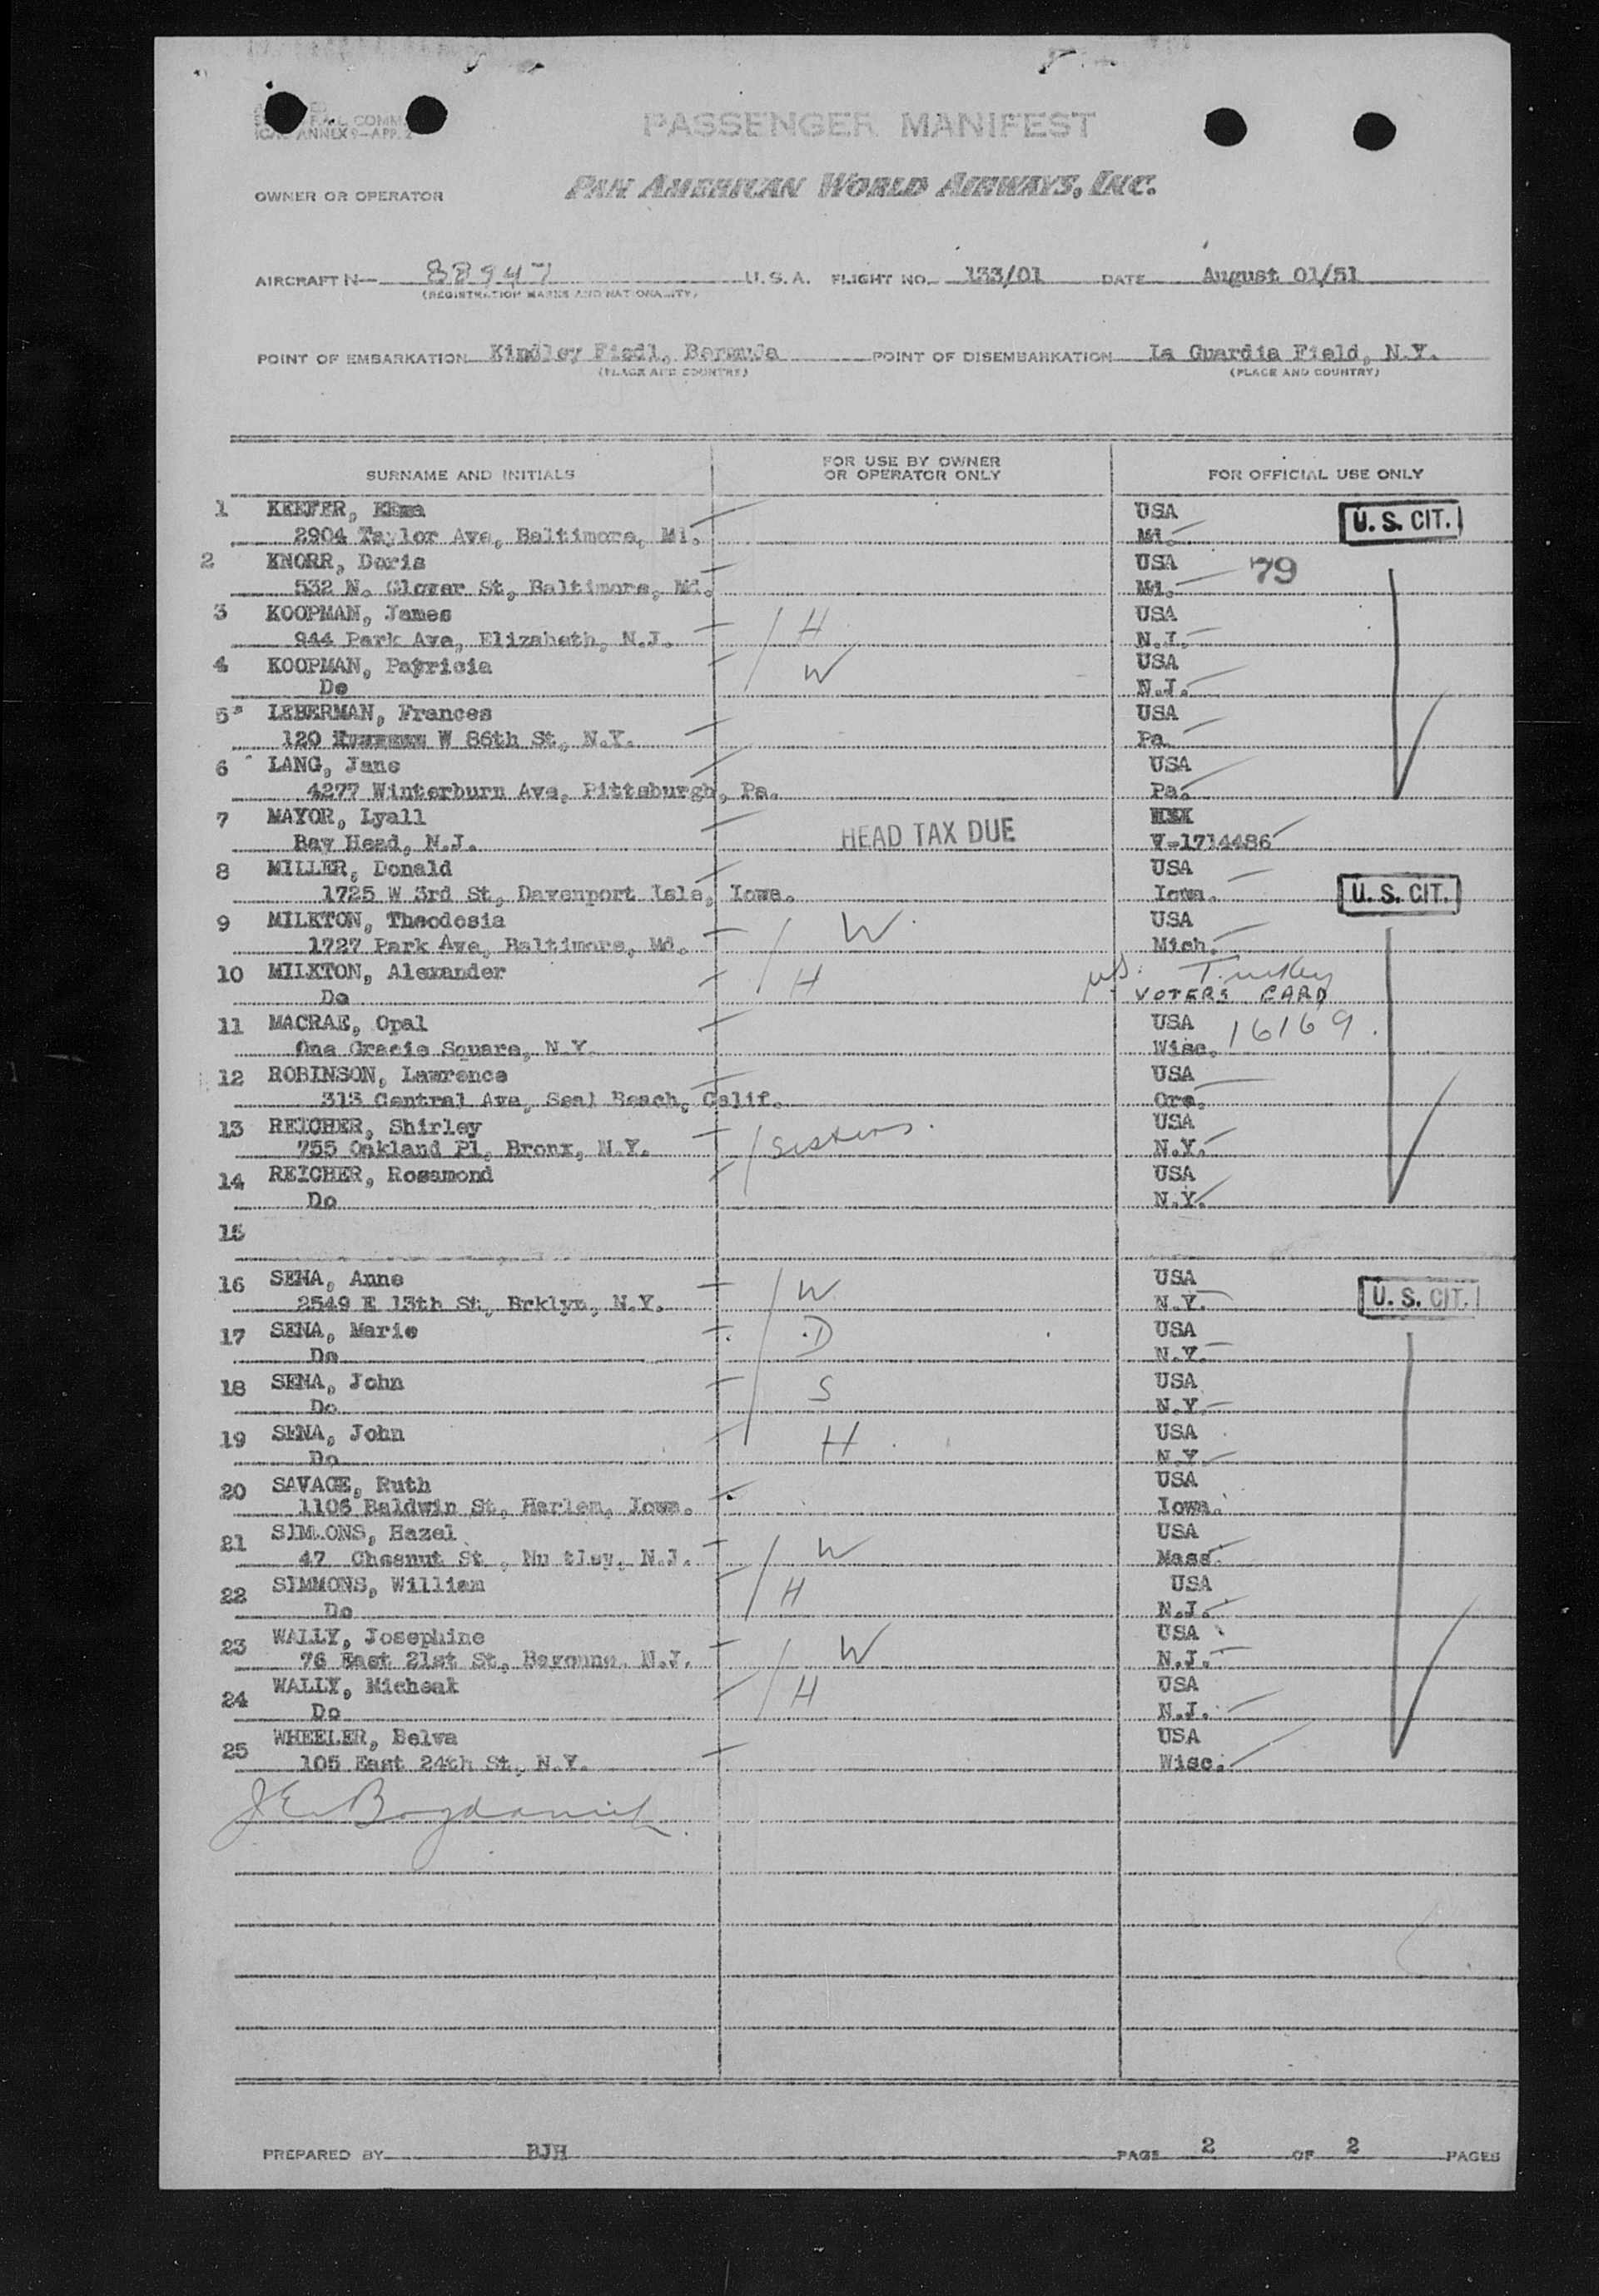 F.A.L. COMM.
ICAO ANNEX 9—APP. 2
PASSENGER MANIFEST
OWNER OR OPERATOR PAN AMERICAN WORLD AIRWAYS, INC.
AIRCRAFT N— 88947 U.S.A. FLIGHT NO. 133/01 DATE August 01/51
(REGISTRATION MARKS AND NATIONALITY)
POINT OF EMBARKATION Kindley Fiedl, Bermuda POINT OF DISEMBARKATION La Guardia Field, N.Y.
(PLACE AND COUNTRY) (PLACE AND COUNTRY)
SURNAME AND INITIALS FOR USE BY OWNER OR OPERATOR ONLY FOR OFFICIAL USE ONLY
1 KEEFER, USA U. S. CIT.
2904 Taylor Ave, Baltimore, Md. Md.
2 KNORR, Doris USA 79
532 N. Glover St, Baltimore, Md. Md.
3 KOOPMAN, James H USA
944 Park Ave, Elizabeth, N.J. N.J.
4 KOOPMAN, Patricia W USA
Do N.J.
5 LEBERMAN, Frances USA
120 W 86th St, N.Y. Pa.
6 LANG, Jane USA
4277 Winterburn Ave, Pittsburgh, Pa. Pa.
7 MAYOR, Lyall HEAD TAX DUE
Bay Head, N.J. V-1714486
8 MILLER, Donald USA U. S. CIT.
1725 W 3rd St, Davenport Isle, Iowa. Iowa.
9 MILKTON, Theodosia W USA
1727 Park Ave, Baltimore, Md. Mich.
10 MILKTON, Alexander H Turkey
Do VOTERS CARD
11 MACRAE, Opal USA 16169.
One Gracie Square, N.Y. Wisc.
12 ROBINSON, Lawrence USA
313 Central Ave, Seal Beach, Calif. Ore.
13 REICHER, Shirley Sisters. USA
755 Oakland Pl, Bronx, N.Y. N.Y.
14 REICHER, Rosamond USA
Do N.Y.
15
16 SENA, Anne W USA U. S. CIT.
2549 E 13th St, Brklyn, N.Y. N.Y.
17 SENA, Marie D USA
Do N.Y.
18 SENA, John S USA
Do N.Y.
19 SENA, John H USA
Do N.Y.
20 SAVAGE, Ruth USA
1106 Baldwin St, Harlem, Iowa. Iowa.
21 SIMMONS, Hazel W USA
47 Chesnut St, Nu tley, N.J. Mass.
22 SIMMONS, William H USA
Do N.J.
23 WALLY, Josephine W USA
76 East 21st St, Bayonne, N.J. N.J.
24 WALLY, Micheal H USA
Do N.J.
25 WHEELER, Belva USA
105 East 24th St, N.Y. Wisc.
PREPARED BY BJH PAGE 2 OF 2 PAGES